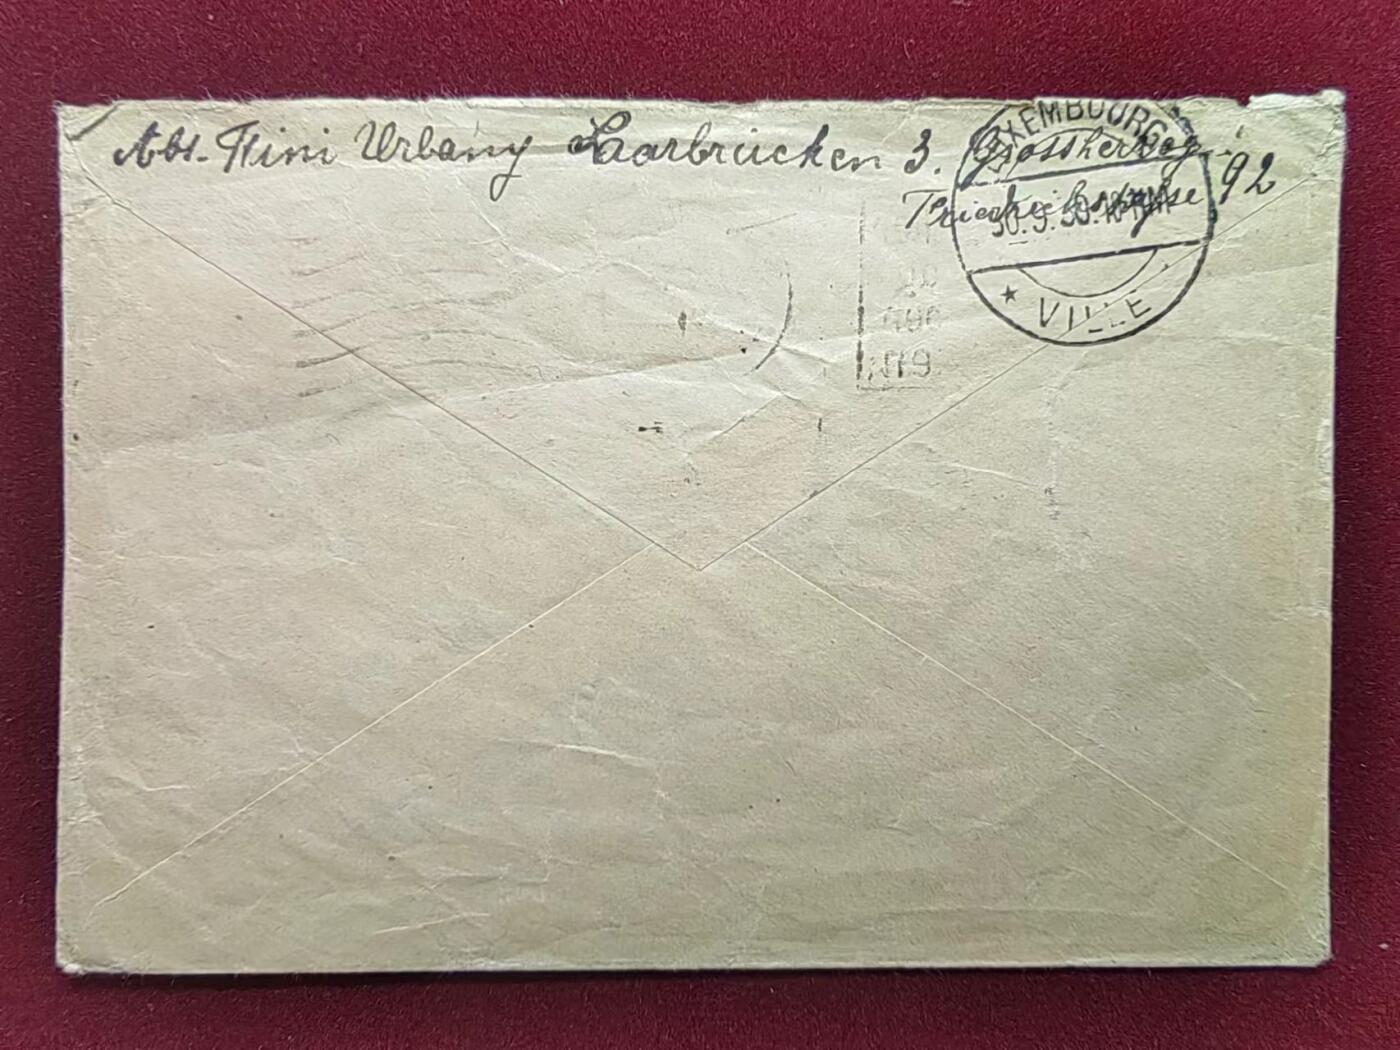 Abs. Tini Urbany Saarbrücken 3. Grossherzog
Friedrichstrasse 92
LUXEMBOURG
VILLE